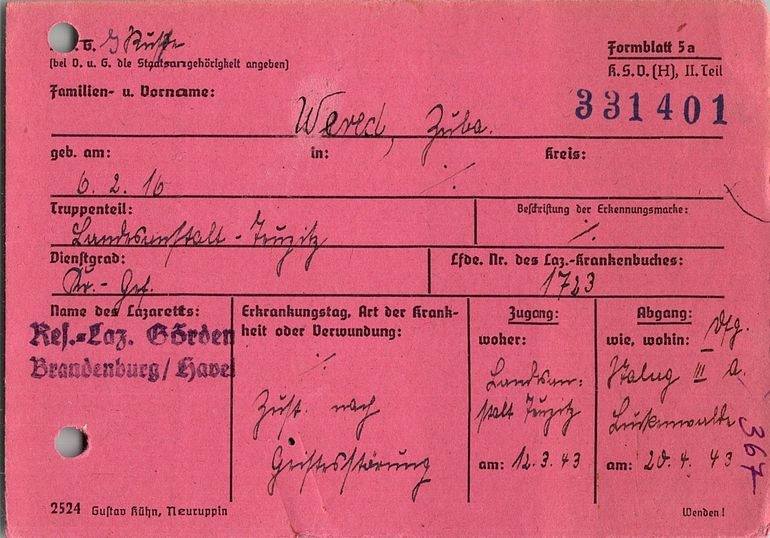 Russe
Formblatt 5a
(bei D. u. G. die Staatsangehörigkeit angeben)
K.S.D. (H), II. Teil
Familien- u. Vorname:
331401
Wered, Zuba.
geb. am: in: Kreis:
6. 2. 16 ./.
Truppenteil: Beschriftung der Erkennungsmarke:
Landesanstalt - Teupitz ./.
Dienstgrad: Lfde. Nr. des Laz.-Krankenbuches:
Kr. - Gef. 1723
Name des Lazaretts:
Res.-Laz. Görden
Brandenburg/Havel
Erkrankungstag, Art der Krank-
heit oder Verwundung:
./.
Zust. nach
Geistesstörung
Zugang:
woher:
Landesan-
stalt Teupitz
am: 12. 3. 43
Abgang:
wie, wohin: Vfg.
Stalag III a.
Luckenwalde
am: 20. 4. 43
367
2524 Gustav Kühn, Neuruppin
Wenden!